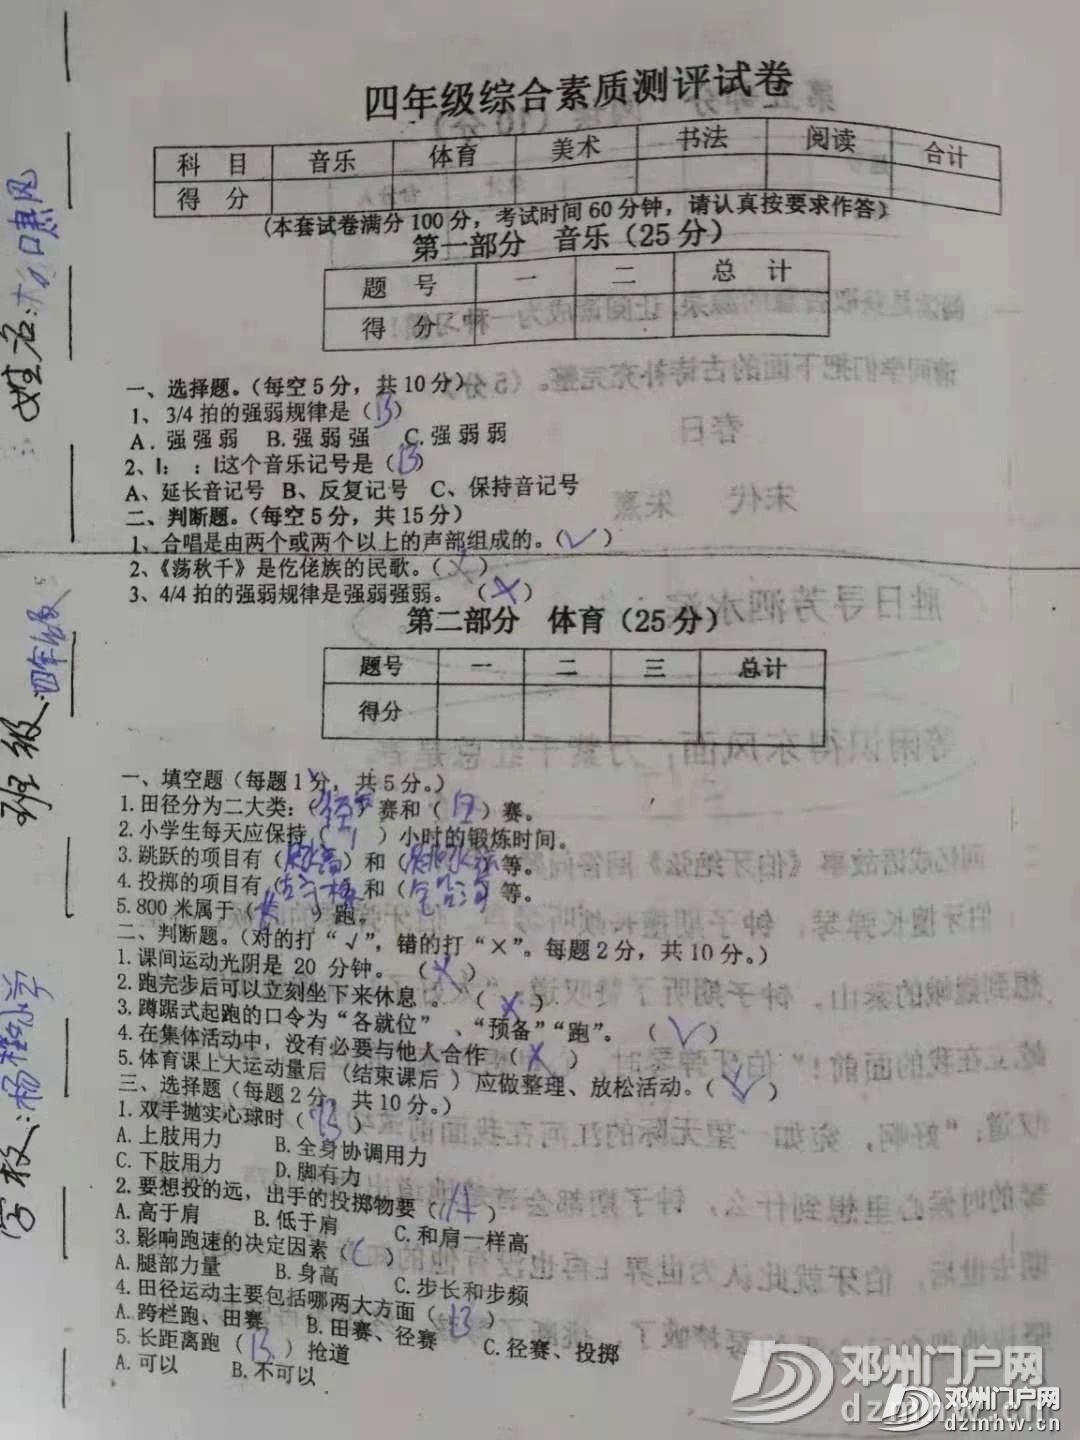 四年级综合素质测评试卷
科 目 音乐 体育 美术 书法 阅读 合计
得 分
(本套试卷满分 100 分，考试时间 60 分钟，请认真按要求作答)
第一部分 音乐（25 分）
题 号 一 二 总 计
得 分
一、选择题。（每空 5 分，共 10 分）
1、3/4 拍的强弱规律是（B）
A．强 强 弱 B. 强 弱 强 C. 强 弱 弱
2、‖： ：‖这个音乐记号是（B）
A、延长音记号 B、反复记号 C、保持音记号
二、判断题。（每空 5 分，共 15 分）
1、合唱是由两个或两个以上的声部组成的。（√）
2、《荡秋千》是仡佬族的民歌。（×）
3、4/4 拍的强弱规律是强弱强弱。（×）
第二部分 体育（25 分）
题号 一 二 三 总计
得分
一、填空题（每题 1 分，共 5 分。）
1. 田径分为二大类：（径）赛和（田）赛。
2. 小学生每天应保持（1）小时的锻炼时间。
3. 跳跃的项目有（跳高）和（ ）等。
4. 投掷的项目有（ ）和（ ）等。
5. 800 米属于（长）跑。
二、判断题。（对的打“√”，错的打“×”。每题 2 分，共 10 分。）
1. 课间运动光阴是 20 分钟。（×）
2. 跑完步后可以立刻坐下来休息。（×）
3. 蹲踞式起跑的口令为“各就位”、“预备”“跑”。（√）
4. 在集体活动中，没有必要与他人合作（×）
5. 体育课上大运动量后（结束课后）应做整理、放松活动。（√）
三、选择题（每题 2 分，共 10 分。）
1. 双手抛实心球时（B）
A. 上肢用力 B. 全身协调用力
C. 下肢用力 D. 脚有力
2. 要想投的远，出手的投掷物要（A）
A. 高于肩 B. 低于肩 C. 和肩一样高
3. 影响跑速的决定因素（C）
A. 腿部力量 B. 身高 C. 步长和步频
4. 田径运动主要包括哪两大方面（B）
A. 跨栏跑、田赛 B. 田赛、径赛 C. 径赛、投掷
5. 长距离跑（B）抢道
A. 可以 B. 不可以
姓名：
班级：四年级
学校：杨程小学
邓州门户网
dzmhw.cn
邓州门户网
dzmhw.cn